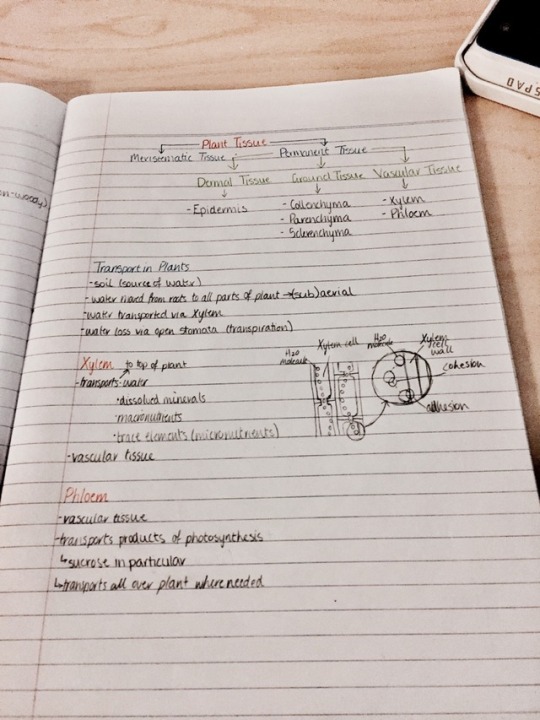 Plant Tissue
Meristematic Tissue Permanent Tissue
Dermal Tissue Ground Tissue Vascular Tissue
- Epidermis - Collenchyma - Xylem
- Parenchyma - Phloem
- Sclerenchyma
Transport in Plants
- soil (source of water)
- water moved from roots to all parts of plant → (sub)aerial
- water transported via Xylem
- water loss via open stomata (transpiration)
Xylem to top of plant
- transports water
· dissolved minerals
· macronutrients
· trace elements (micronutrients)
- vascular tissue
H2O molecule Xylem cell H2O molecule Xylem cell wall
cohesion
adhesion
Phloem
- vascular tissue
- transports products of photosynthesis
↳ sucrose in particular
↳ transports all over plant where needed